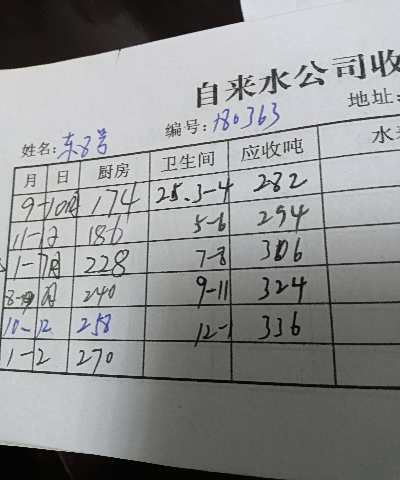 自来水公司收
姓名: 东8号 编号: 180363 地址:
月 日 厨房 卫生间 应收吨 水
9-10月 174 25.3-4 282
11-12 186 5-6 294
1-7月 228 7-8 306
月 240 9-11 324
10-12 258 12-1 336
1-2 270